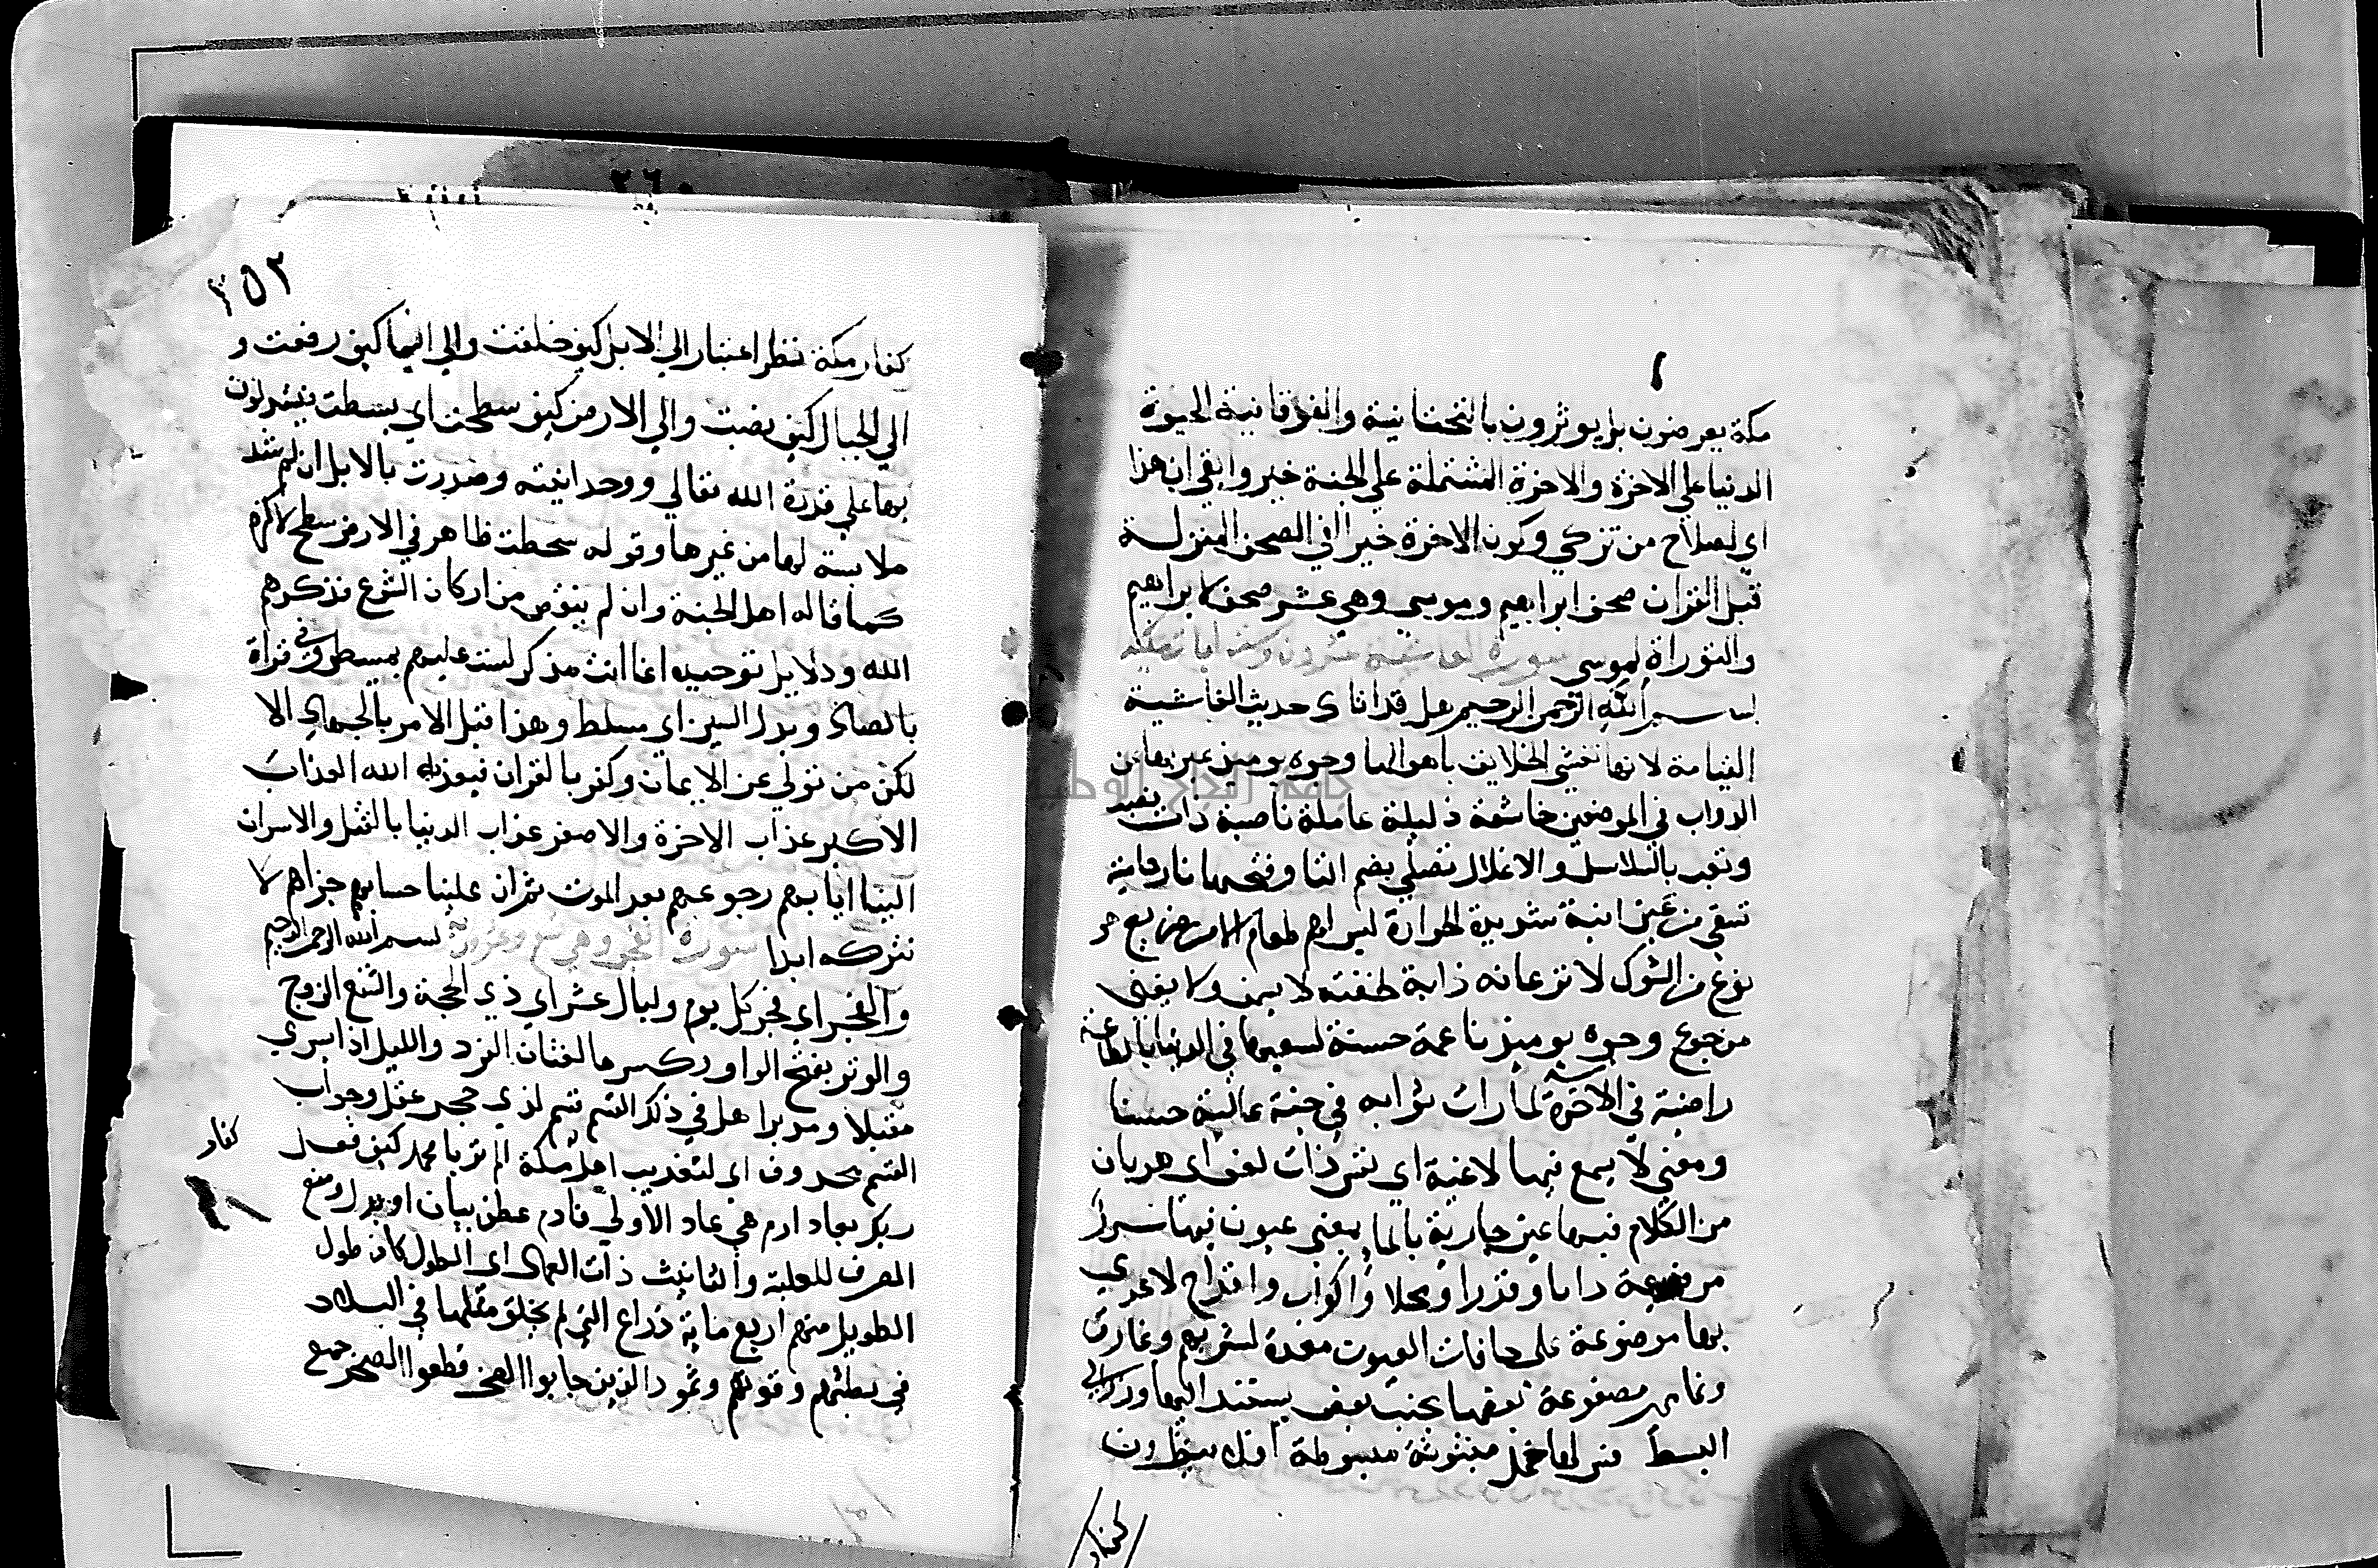 مكة يعرضون بل يوثرون بالتحتانية والفوقانية الحيوة
الدنيا على الاخرة والاخرة المشتملة على الجنة خير وابقى ان هذا
اي لصلاح من تزكي وكون الاخرة خيرا لفي الصحف المنزلة
قبل القران صحف ابراهيم وموسى وهي عشر صحف لابراهيم
والتوراة لموسى سورة الغاشية عشرون وست ايات مكية
بسم الله الرحمن الرحيم هل قد اتاك حديث الغاشية
القيامة لانها تغشي الخلايف باهوالها وجوه يوميذ عبر بها عن
الذواب في الموضعين خاشعة ذليلة عاملة ناصبة ذات نصب
وتعب بالسلاسل والاغلال تصلي بضم التا وفتحها نارحامية
تسقي من عين انية شديدة الحرارة ليس لهم طعام الا من ضريع هو
نوع من الشوك لا ترعاه دابة لخبثه لا يسمن ولا يغني
من جوع وجوه يوميذ ناعمة حسنة لسعيها في الدنيا بالطاعة
راضية في الاخرة لما رات ثوابه في جنة عالية حسنا
ومعني لا يسمع فيها لاغية اي نفس ذات لغو اي هذيان
من الكلام فيها عين جارية بالما بمعني عيون فيها سرر
مرفوعة ذاتا وقدرا ومحلا واكواب واقداح لا عرى
لها موضوعة على حافات العيون معدة لشربهم ونمارق
ونمارق مصفوفة بعضها بجنب بعض يستند اليها وزرابي
البسط التي لها خمل مبثوثة مبسوطة افلا ينظرون
كفار
٢٥٢
كفار مكة نظر اعتبار الي الابل كيف خلقت والي السما كيف رفعت و
الي الجبال كيف نصبت والي الارض كيف سطحت اي بسطت فيستدلون
بها على قدرة الله تعالي ووحدانيته وصدرت بالابل لانهم اشد
ملابسة لها من غيرها وقوله سطحت ظاهر في الارض سطح لا كرة
كما قاله اهل الهيئة وان لم ينقض من اركان الشرع فذكرهم
الله ودلايل توحيده انما انت مذكر لست عليهم بمسيطر وفي قراة
بالصاد وبدل السين اي مسلط وهذا قبل الامر بالجهاد الا
لكن من تولي عن الايمان وكفر بالقران فيعذبه الله العذاب
الاكبر عذاب الاخرة والاصغر عذاب الدنيا بالقتل والاسر ان
الينا ايابهم رجوعهم بعد الموت ثم ان علينا حسابهم جزاهم لا
نتركه ابدا سورة الفجر وهي تسع وعشرون بسم الله الرحمن الرحيم
والفجر اي فجر كل يوم وليال عشر اي ذي الحجة والشفع الزوج
والوتر بفتح الواو وكسرها لغتان الفرد والليل اذا يسري
مقبلا ومدبرا هل في ذلك القسم قسم لذي حجر عقل وجواب
القسم محذوف اي لتعذبن اهل مكة الم تر يا محمد كيف فعل
كفار
ربك بعاد ارم هي عاد الاولي فارم عطف بيان او بدل ومنع
الصرف للعلمية والتانيث ذات العماد اي الطول كان طول
الطويل منهم اربع ماية ذراع التي لم يخلق مثلها في البلاد
في بطشهم وقوتهم وثمود الذين جابوا الصخر قطعوا الصخر جمع